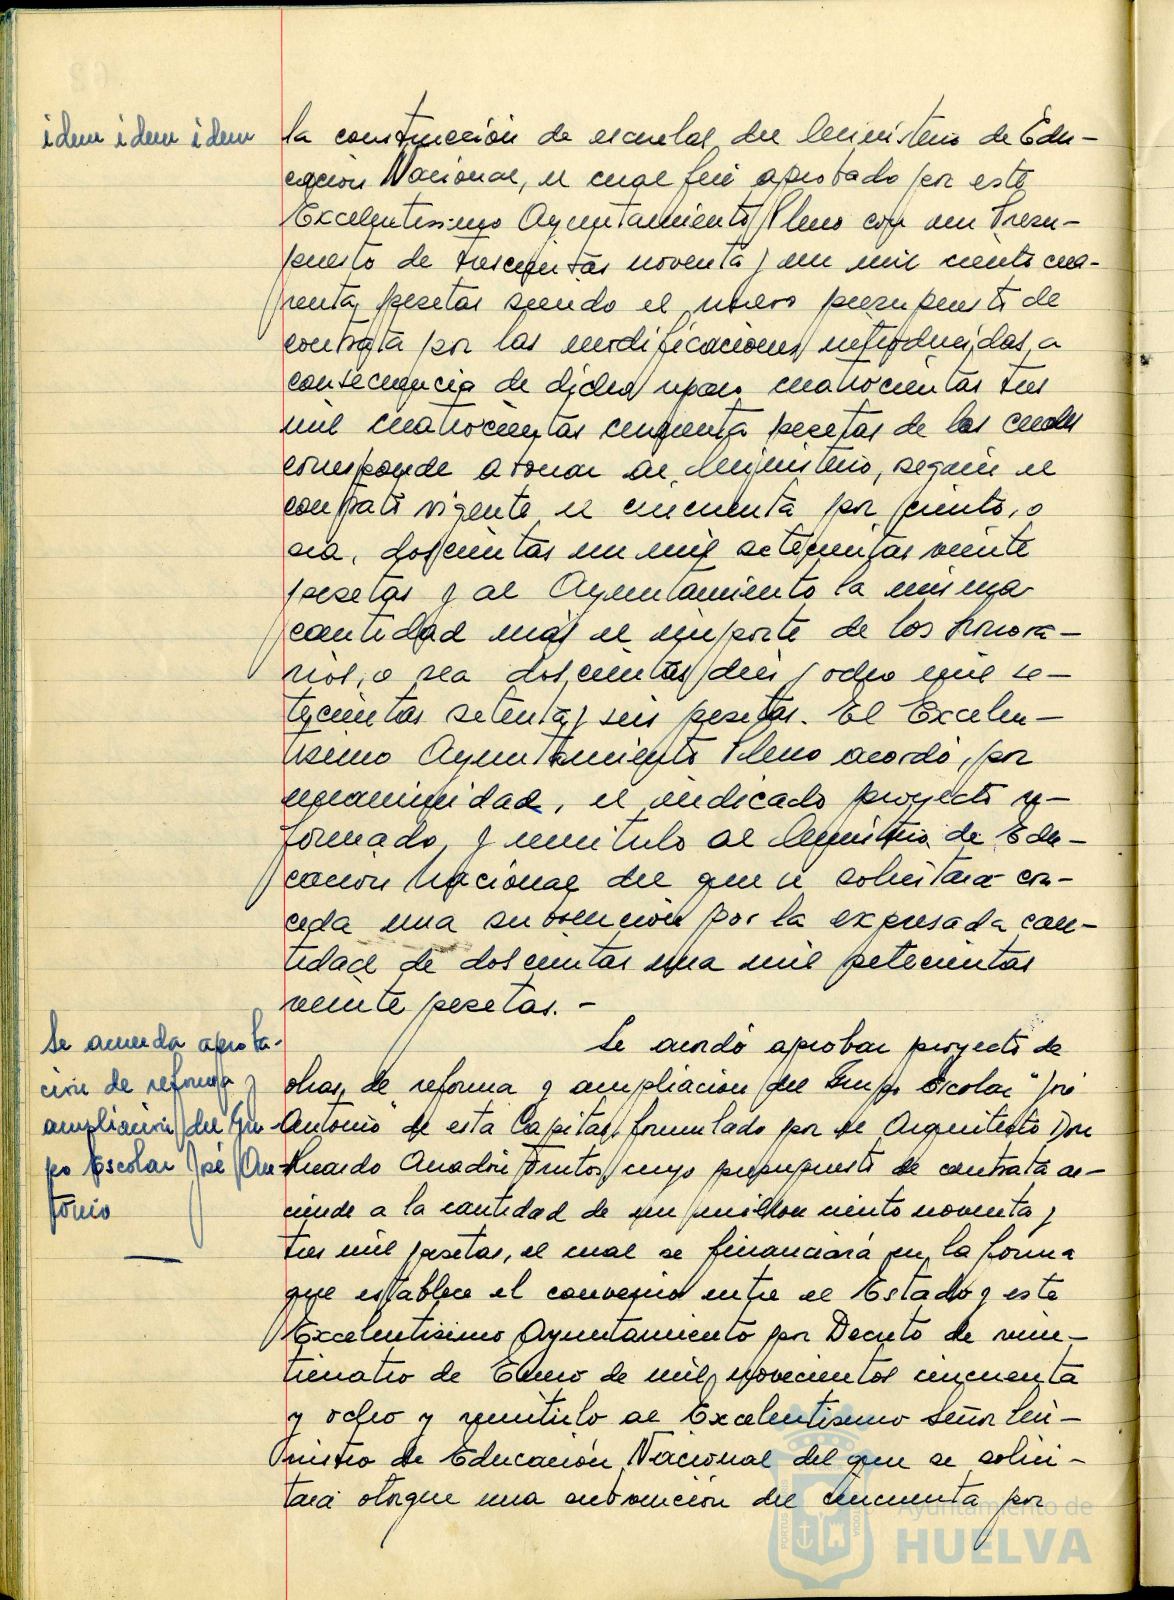 idem idem idem
la construcción de escuelas del Ministerio de Edu-
cación Nacional, el cual fué aprobado por este
Excelentísimo Ayuntamiento Pleno con un Presu-
puesto de trescientas noventa y un mil ciento cua-
renta pesetas siendo el nuevo presupuesto de
contrata por las modificaciones introducidas a
consecuencia de dicho reparo cuatrocientas tres
mil cuatrocientas cuarenta pesetas de las cuales
corresponde abonar al Ministerio, según el
contrato vigente el cincuenta por ciento, o
sea, doscientas un mil setecientas veinte
pesetas y al Ayuntamiento la misma
cantidad más el importe de los honora-
rios, o sea doscientas diez y ocho mil se-
tecientas setenta y seis pesetas. El Excelen-
tísimo Ayuntamiento Pleno acordó, por
unanimidad, el indicado proyecto re-
formado, y remitirlo al Ministerio de Edu-
cación Nacional del que se solicitará con-
ceda una subvención por la expresada can-
tidad de doscientas una mil setecientas
veinte pesetas. -
Se acuerda aproba-
ción de reforma y
ampliación del Gru-
po Escolar José An-
tonio
Se acordó aprobar proyecto de
obras de reforma y ampliación del Grupo Escolar "José
Antonio" de esta Capital, formulado por el Arquitecto Don
Ricardo Anadón Frutos, cuyo presupuesto de contrata as-
ciende a la cantidad de un millón ciento noventa y
tres mil pesetas, el cual se financiará en la forma
que establece el convenio entre el Estado y este
Excelentísimo Ayuntamiento por Decreto de vein-
ticuatro de Enero de mil novecientos cincuenta
y ocho y remitirlo al Excelentísimo Señor Mi-
nistro de Educación Nacional del que se solici-
tará otorgue una subvención del cincuenta por
Ayuntamiento de
HUELVA